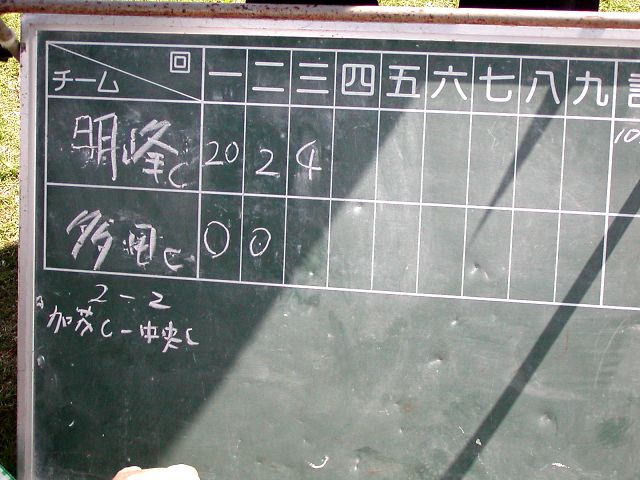 チーム 回 一 二 三 四 五 六 七 八 九
明峰C 20 2 4
多田C 0 0
2-2
加茂C-中央C